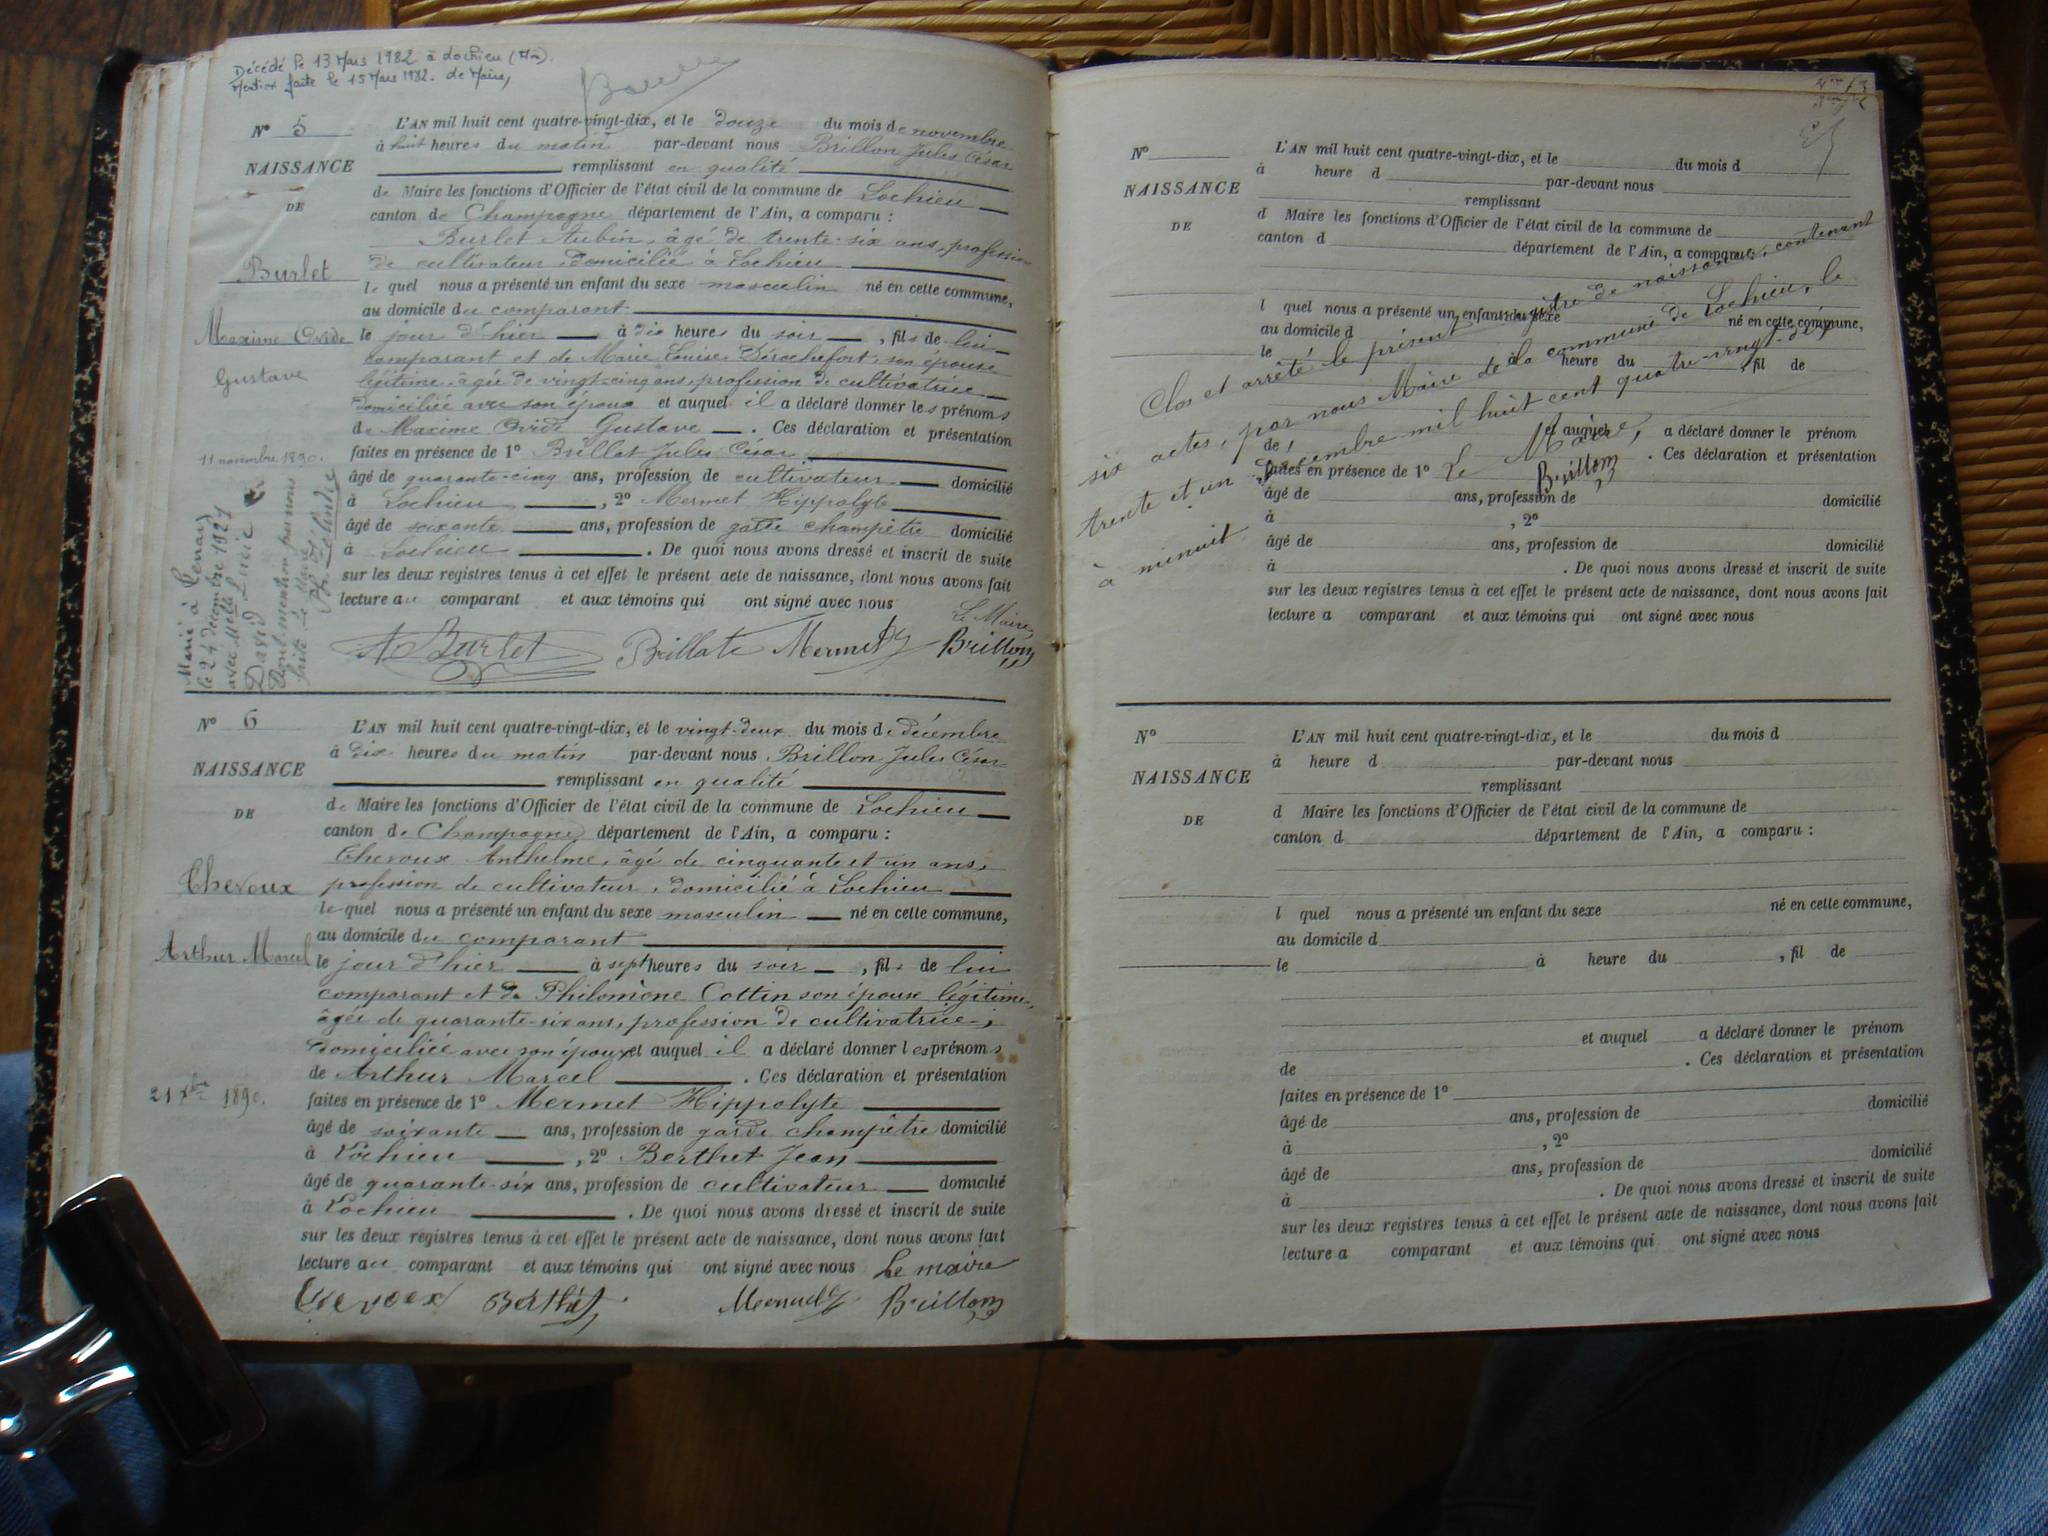 Décédé le 13 Mars 1982 à Lochieu (Ain).
Mention faite le 15 Mars 1982. Le Maire,
N° 5
NAISSANCE
DE
Burlet
Maxime Ovide
Gustave
11 novembre 1890.
Marié à Ceriat
le 24 décembre 1921
avec Melle
David Lucie
Dont mention par nous
faite Le Maire
L'AN mil huit cent quatre-vingt-dix, et le douze du mois de novembre
à huit heures du matin par-devant nous Brillon Jules César
remplissant en qualité
de Maire les fonctions d'Officier de l'état civil de la commune de Lochieu
canton de Champagne département de l'Ain, a comparu :
Burlet Aubin, âgé de trente-six ans, profession
de cultivateur domicilié à Lochieu
lequel nous a présenté un enfant du sexe masculin né en cette commune,
au domicile du comparant
le jour d'hier à dix heures du soir, fils de lui
comparant et de Marie Louise Dérochefort, son épouse
légitime, âgée de vingt-cinq ans, profession de cultivatrice
domiciliée avec son époux et auquel il a déclaré donner les prénoms
de Maxime Ovide Gustave. Ces déclaration et présentation
faites en présence de 1° Brillat Jules César
âgé de quarante-cinq ans, profession de cultivateur domicilié
à Lochieu, 2° Mermet Hippolyte
âgé de soixante ans, profession de garde champêtre domicilié
à Lochieu. De quoi nous avons dressé et inscrit de suite
sur les deux registres tenus à cet effet le présent acte de naissance, dont nous avons fait
lecture au comparant et aux témoins qui ont signé avec nous
Le Maire,
A Burlet Brillat Mermet Hy Brillon
N° 6
NAISSANCE
DE
Chevoux
Arthur Marcel
21 Xbre 1890.
L'AN mil huit cent quatre-vingt-dix, et le vingt-deux du mois de décembre
à dix heures du matin par-devant nous Brillon Jules César
remplissant en qualité
de Maire les fonctions d'Officier de l'état civil de la commune de Lochieu
canton de Champagne département de l'Ain, a comparu :
Chevoux Anthelme, âgé de cinquante et un ans,
profession de cultivateur, domicilié à Lochieu
lequel nous a présenté un enfant du sexe masculin né en cette commune,
au domicile du comparant
le jour d'hier à sept heures du soir, fils de lui
comparant et de Philomène Cottin son épouse légitime,
âgée de quarante-six ans, profession de cultivatrice,
domiciliée avec son époux et auquel il a déclaré donner les prénoms
de Arthur Marcel. Ces déclaration et présentation
faites en présence de 1° Mermet Hippolyte
âgé de soixante ans, profession de garde champêtre domicilié
à Lochieu, 2° Berthet Jean
âgé de quarante-six ans, profession de cultivateur domicilié
à Lochieu. De quoi nous avons dressé et inscrit de suite
sur les deux registres tenus à cet effet le présent acte de naissance, dont nous avons fait
lecture au comparant et aux témoins qui ont signé avec nous Le maire
Chevoux Berthet Mermet Hy Brillon
N°
NAISSANCE
DE
L'AN mil huit cent quatre-vingt-dix, et le du mois d
à heure d par-devant nous
remplissant
d Maire les fonctions d'Officier de l'état civil de la commune de
canton d département de l'Ain, a comparu :
l quel nous a présenté un enfant du sexe né en cette commune,
au domicile d
le à heure du , fil de
et auquel a déclaré donner le prénom
de . Ces déclaration et présentation
faites en présence de 1°
âgé de ans, profession de domicilié
à , 2°
âgé de ans, profession de domicilié
à . De quoi nous avons dressé et inscrit de suite
sur les deux registres tenus à cet effet le présent acte de naissance, dont nous avons fait
lecture a comparant et aux témoins qui ont signé avec nous
Clos et arrêté le présent registre de naissance, contenant
six actes, par nous Maire de la commune de Lochieu, le
trente et un décembre mil huit cent quatre-vingt-dix
à minuit.
Le Maire,
Brillon
N°
NAISSANCE
DE
L'AN mil huit cent quatre-vingt-dix, et le du mois d
à heure d par-devant nous
remplissant
d Maire les fonctions d'Officier de l'état civil de la commune de
canton d département de l'Ain, a comparu :
l quel nous a présenté un enfant du sexe né en cette commune,
au domicile d
le à heure du , fil de
et auquel a déclaré donner le prénom
de . Ces déclaration et présentation
faites en présence de 1°
âgé de ans, profession de domicilié
à , 2°
âgé de ans, profession de domicilié
à . De quoi nous avons dressé et inscrit de suite
sur les deux registres tenus à cet effet le présent acte de naissance, dont nous avons fait
lecture a comparant et aux témoins qui ont signé avec nous